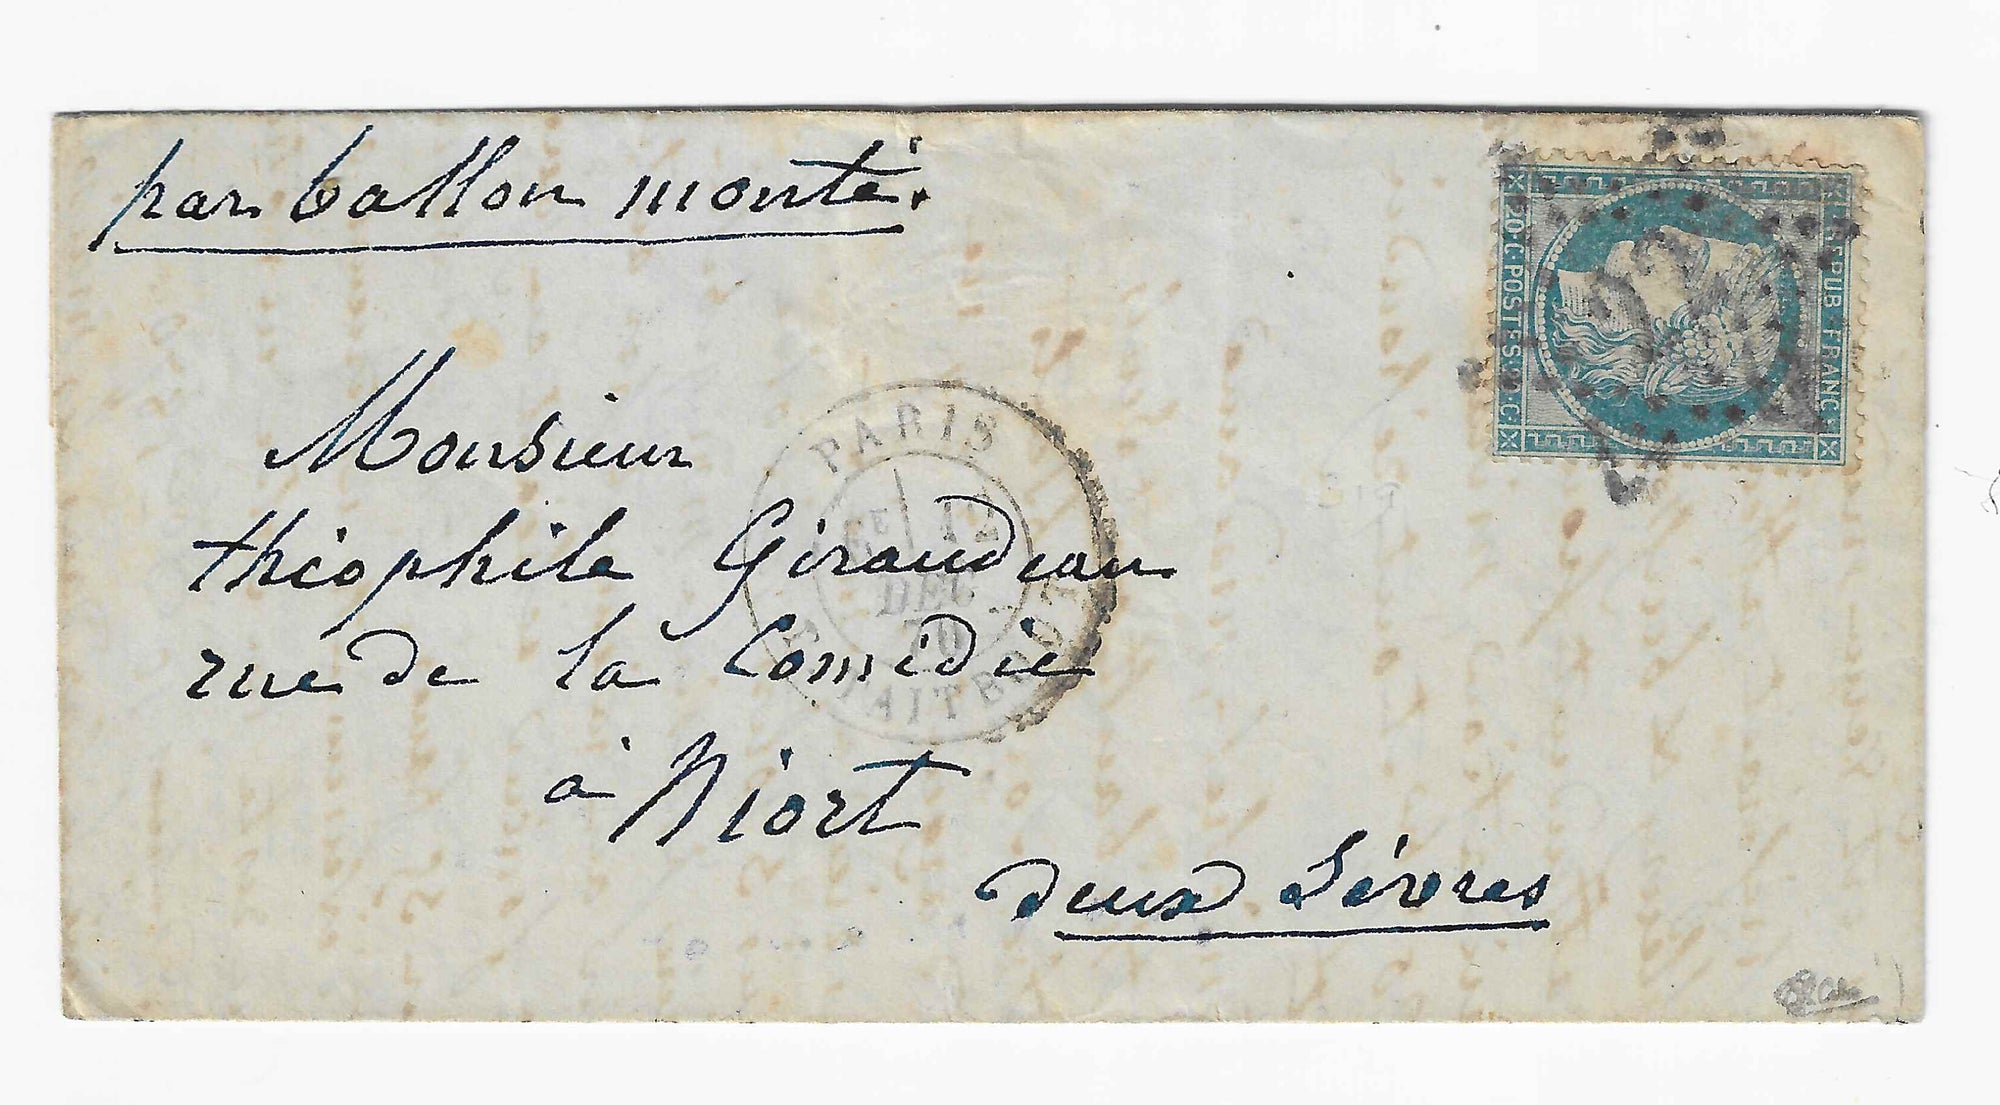 par ballon monté.
REPUB. FRANC.
20·C·POSTES·20·C
Monsieur
théophile Giraudeau
rue de la Comédie
à Niort
deux Sèvres
PARIS
6E 12
DEC
70
TAITBOUT